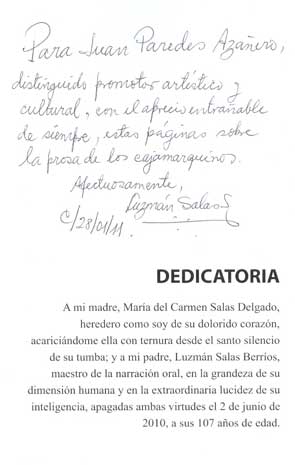 Para Juan Paredes Azañero,
distinguido promotor artístico y
cultural, con el aprecio entrañable
de siempre, estas páginas sobre
la prosa de los cajamarquinos.
Afectuosamente,
Luzmán Salas S
C/28/01/11
DEDICATORIA
A mi madre, María del Carmen Salas Delgado,
heredero como soy de su dolorido corazón,
acariciándome ella con ternura desde el santo silencio
de su tumba; y a mi padre, Luzmán Salas Berríos,
maestro de la narración oral, en la grandeza de su
dimensión humana y en la extraordinaria lucidez de su
inteligencia, apagadas ambas virtudes el 2 de junio de
2010, a sus 107 años de edad.